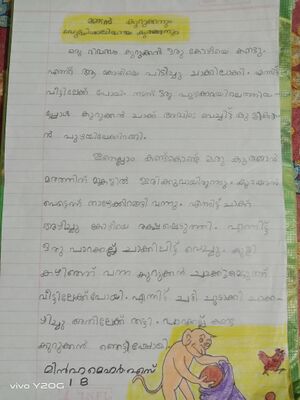 മണ്ടൻ കുറുക്കനും
ബുദ്ധിശാലിയായ കുരങ്ങനും
ഒരു ദിവസം കുറുക്കൻ ഒരു കോഴിയെ കണ്ടു.
എന്നിട്ട് ആ കോഴിയെ പിടിച്ചു ചാക്കിലാക്കി. എന്നിട്ട്
വീട്ടിലേക്ക് പോയി. നടന്ന് ഒരു പുഴക്കരയിലെത്തിയ
പ്പോൾ കുറുക്കൻ ചാക്ക് അവിടെ വെച്ചിട്ട് കുളിക്കുവാ
ൻ പുഴയിലേക്കിറങ്ങി.
ഇതെല്ലാം കണ്ടുകൊണ്ട് ഒരു കുരങ്ങൻ
മരത്തിന് മുകളിൽ ഇരിക്കുവായിരുന്നു. കുരങ്ങൻ
പെട്ടെന്ന് താഴേക്കിറങ്ങി വന്നു. എന്നിട്ട് ചാക്ക്
അഴിച്ചു കോഴിയെ രക്ഷപ്പെടുത്തി. എന്നിട്ട്
ഒരു പാറക്കല്ല് ചാക്കിലിട്ട് വെച്ചു. കുളി
കഴിഞ്ഞ് വന്ന കുറുക്കൻ ചാക്കുമെടുത്ത്
വീട്ടിലേക്ക് പോയി. എന്നിട്ട്
ഴിച്ചു അതിലേക്ക് തട്ടി. പാറക്കല്ല് കണ്ട
കുറുക്കൻ ഞെട്ടിപ്പോയി
മിൻഹമെഹർ എസ്
1 B
vivo Y20G